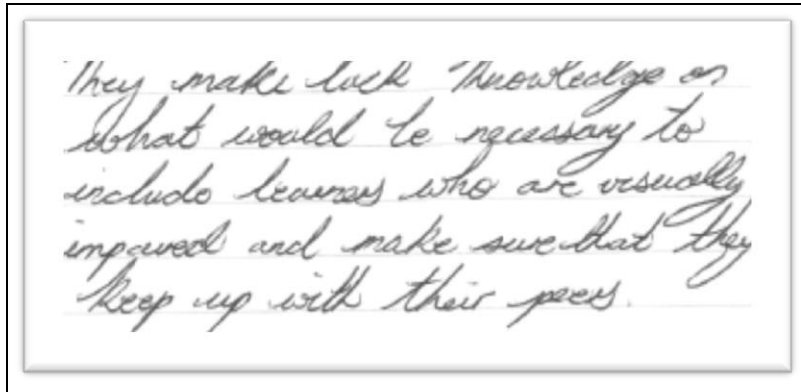 They make lack knowledge on
what would be necessary to
include learners who are visually
impaired and make sure that they
keep up with their peers.